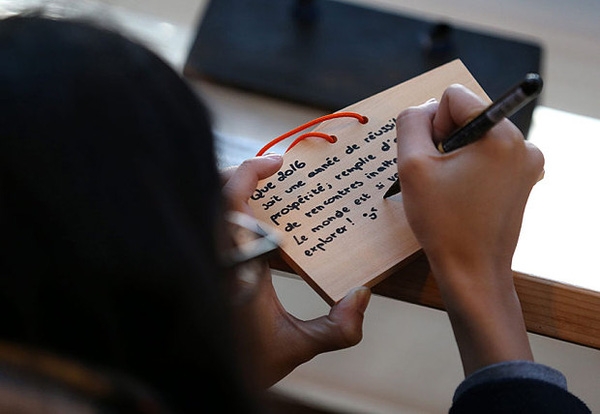 Que 2016
soit une année de
prospérité, remplie
de rencontres
Le monde est
explorer!